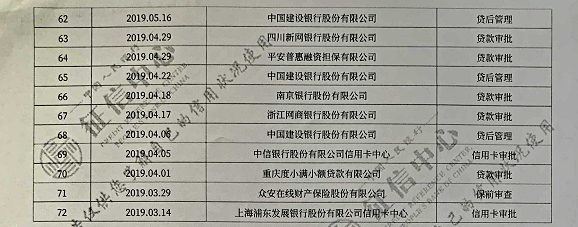 62 2019.05.16 中国建设银行股份有限公司 贷后管理
63 2019.04.29 四川新网银行股份有限公司 贷款审批
64 2019.04.29 平安普惠融资担保有限公司 贷款审批
65 2019.04.22 中国建设银行股份有限公司 贷后管理
66 2019.04.18 南京银行股份有限公司 贷款审批
67 2019.04.17 浙江网商银行股份有限公司 贷款审批
68 2019.04.08 中国建设银行股份有限公司 贷后管理
69 2019.04.05 中信银行股份有限公司信用卡中心 信用卡审批
70 2019.04.01 重庆度小满小额贷款有限公司 贷款审批
71 2019.03.29 众安在线财产保险股份有限公司 保前审查
72 2019.03.14 上海浦东发展银行股份有限公司信用卡中心 信用卡审批
征信中心
征信中心
自己的信用状况使用
自己的信用状况使用